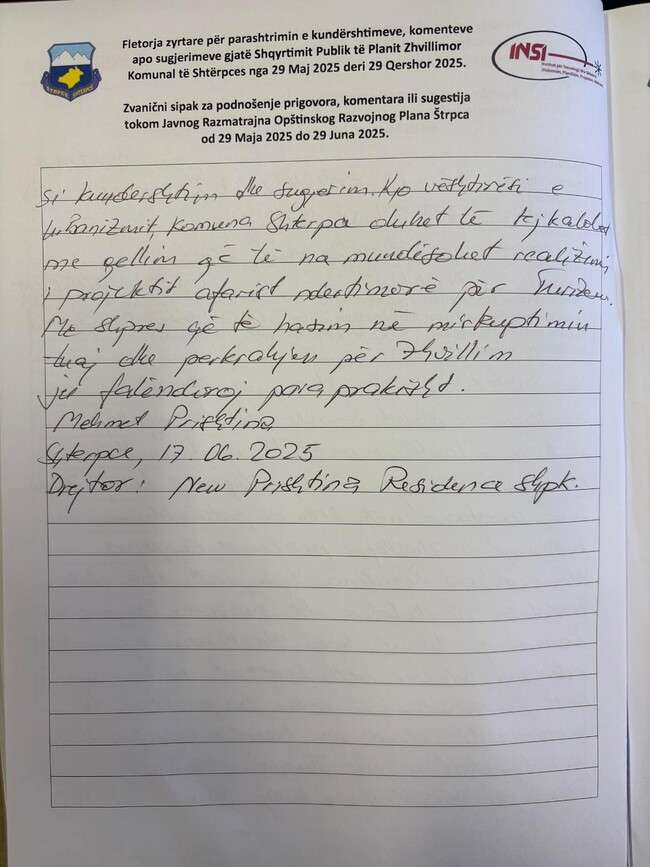 Fletorja zyrtare për parashtrimin e kundërshtimeve, komenteve
apo sugjerimeve gjatë Shqyrtimit Publik të Planit Zhvillimor
Komunal të Shtërpces nga 29 Maj 2025 deri 29 Qershor 2025.
Zvanični sipak za podnošenje prigovora, komentara ili sugestija
tokom Javnog Razmatrajna Opštinskog Razvojnog Plana Štrpca
od 29 Maja 2025 do 29 Juna 2025.
INSI
si kundershtim dhe sugjerim. Kjo vështrësi e
urbanizmit, Komuna Shterpa duhet të tejkalohet
me qellim që të na mundësohet realizimi
i projektit afarist ndertimorë për
Me shpres që të hasim në mirkuptimin
tuaj dhe perkrahjen për Zhvillim
ju falënderoj paraprakisht.
Mehmet Prishtina
Shterpce, 17.06.2025
Drejtor: New Prishtina Residence shpk.